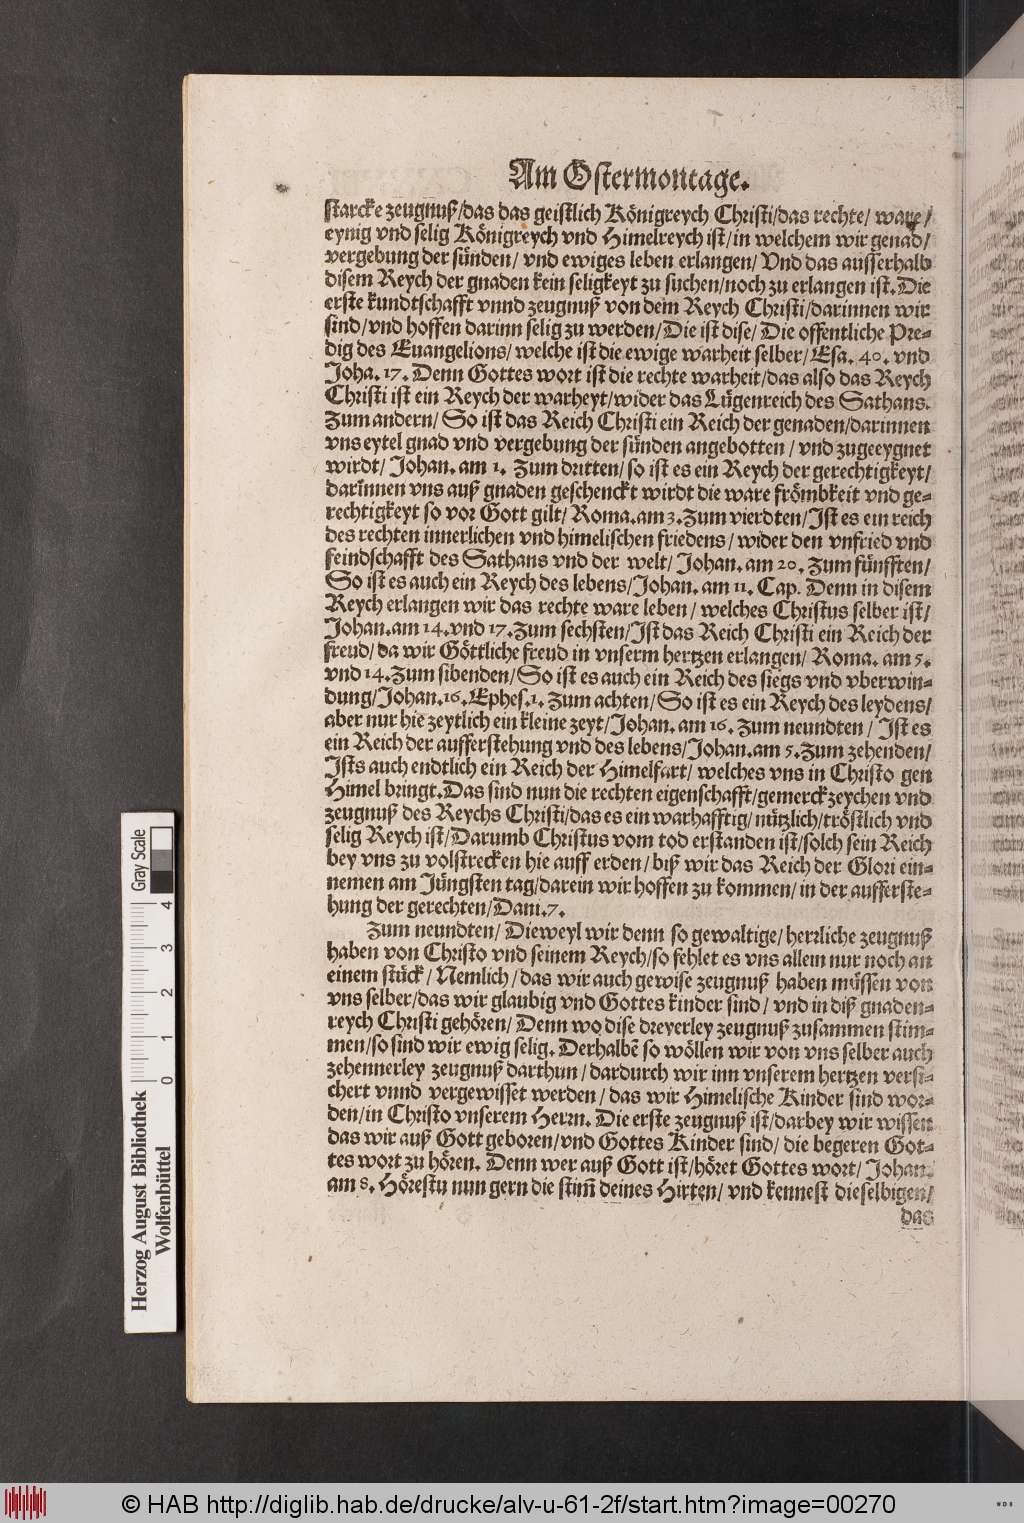 Am Ostermontage.
starcke zeugnuß/das das geistlich Königreych Christi/das rechte/ ware/
eynig vnd selig Königreych vnd Himelreych ist/in welchem wir genad/
vergebung der sünden/ vnd ewiges leben erlangen/ Vnd das ausserhalb
disem Reych der gnaden kein seligkeyt zu suchen/noch zu erlangen ist. Die
erste kundtschafft vnnd zeugnuß von dem Reych Christi/darinnen wir
sind/vnd hoffen darinn selig zu werden/Die ist dise/ Die offentliche Pre-
dig des Euangelions/ welche ist die ewige warheit selber/ Esa. 40. vnd
Joha. 17. Denn Gottes wort ist die rechte warheit/das also das Reych
Christi ist ein Reych der warheyt/wider das Lügenreich des Sathans.
Zum andern/ So ist das Reich Christi ein Reich der genaden/darinnen
vns eytel gnad vnd vergebung der sünden angebotten / vnd zugeeygnet
wirdt/ Johan. am 1. Zum dritten/ so ist es ein Reych der gerechtigkeyt/
darinnen vns auß gnaden geschenckt wirdt die ware frömbkeit vnd ge-
rechtigkeyt so vor Gott gilt/ Roma. am 3. Zum vierdten/Ist es ein reich
des rechten innerlichen vnd himelischen friedens/ wider den vnfried vnd
feindschafft des Sathans vnd der welt/ Johan. am 20. Zum fünfften/
So ist es auch ein Reych des lebens/Johan. am 11. Cap. Denn in disem
Reych erlangen wir das rechte ware leben/ welches Christus selber ist/
Johan. am 14. vnd 17. Zum sechsten/Ist das Reich Christi ein Reich der
freud/ da wir Göttliche freud in vnserm hertzen erlangen/ Roma. am 5.
vnd 14. Zum sibenden/ So ist es auch ein Reich des siegs vnd vberwin-
dung/Johan. 16. Ephes. 1. Zum achten/ So ist es ein Reych des leydens/
aber nur hie zeytlich ein kleine zeyt/Johan. am 16. Zum neundten / Ist es
ein Reich der aufferstehung vnd des lebens/Johan. am 5. Zum zehenden/
Ists auch endtlich ein Reich der Himelfart/ welches vns in Christo gen
Himel bringt. Das sind nun die rechten eigenschafft/gemerckzeychen vnd
zeugnuß des Reychs Christi/das es ein warhafftig/ nützlich/tröstlich vnd
selig Reych ist/Darumb Christus vom tod erstanden ist/solch sein Reich
bey vns zu volstrecken hie auff erden/ biß wir das Reich der Glori ein-
nemen am Jüngsten tag/darein wir hoffen zu kommen/ in der aufferste-
hung der gerechten/Dani. 7.
Zum neundten/ Dieweyl wir denn so gewaltige/ herrliche zeugnuß
haben von Christo vnd seinem Reych/so fehlet es vns allein nur noch an
einem stück/ Nemlich/ das wir auch gewise zeugnuß haben müssen von
vns selber/das wir glaubig vnd Gottes kinder sind/ vnd in diß gnaden-
reych Christi gehören/ Denn wo dise dreyerley zeugnuß zusammen stim-
men/so sind wir ewig selig. Derhalbē so wöllen wir von vns selber auch
zehennerley zeugnuß darthun/ dardurch wir inn vnserem hertzen versi-
chert vnnd vergewisset werden/ das wir Himelische Kinder sind wor-
den/in Christo vnserem Herrn. Die erste zeugnuß ist/darbey wir wissen
das wir auß Gott geboren/vnd Gottes Kinder sind/ die begeren Got-
tes wort zu hören. Denn wer auß Gott ist/höret Gottes wort/ Johan.
am 8. Hörestu nun gern die stim̄ deines Hirten/ vnd kennest dieselbigen/
das
Gray Scale
0 1 2 3 4
Herzog August Bibliothek
Wolfenbüttel
© HAB http://diglib.hab.de/drucke/alv-u-61-2f/start.htm?image=00270
WDB